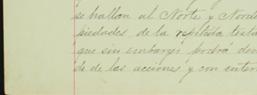 se hallan al Norte y Nord
piedades de la repetida testa
que sin embargo podrá dev
de de las acciones y con enter